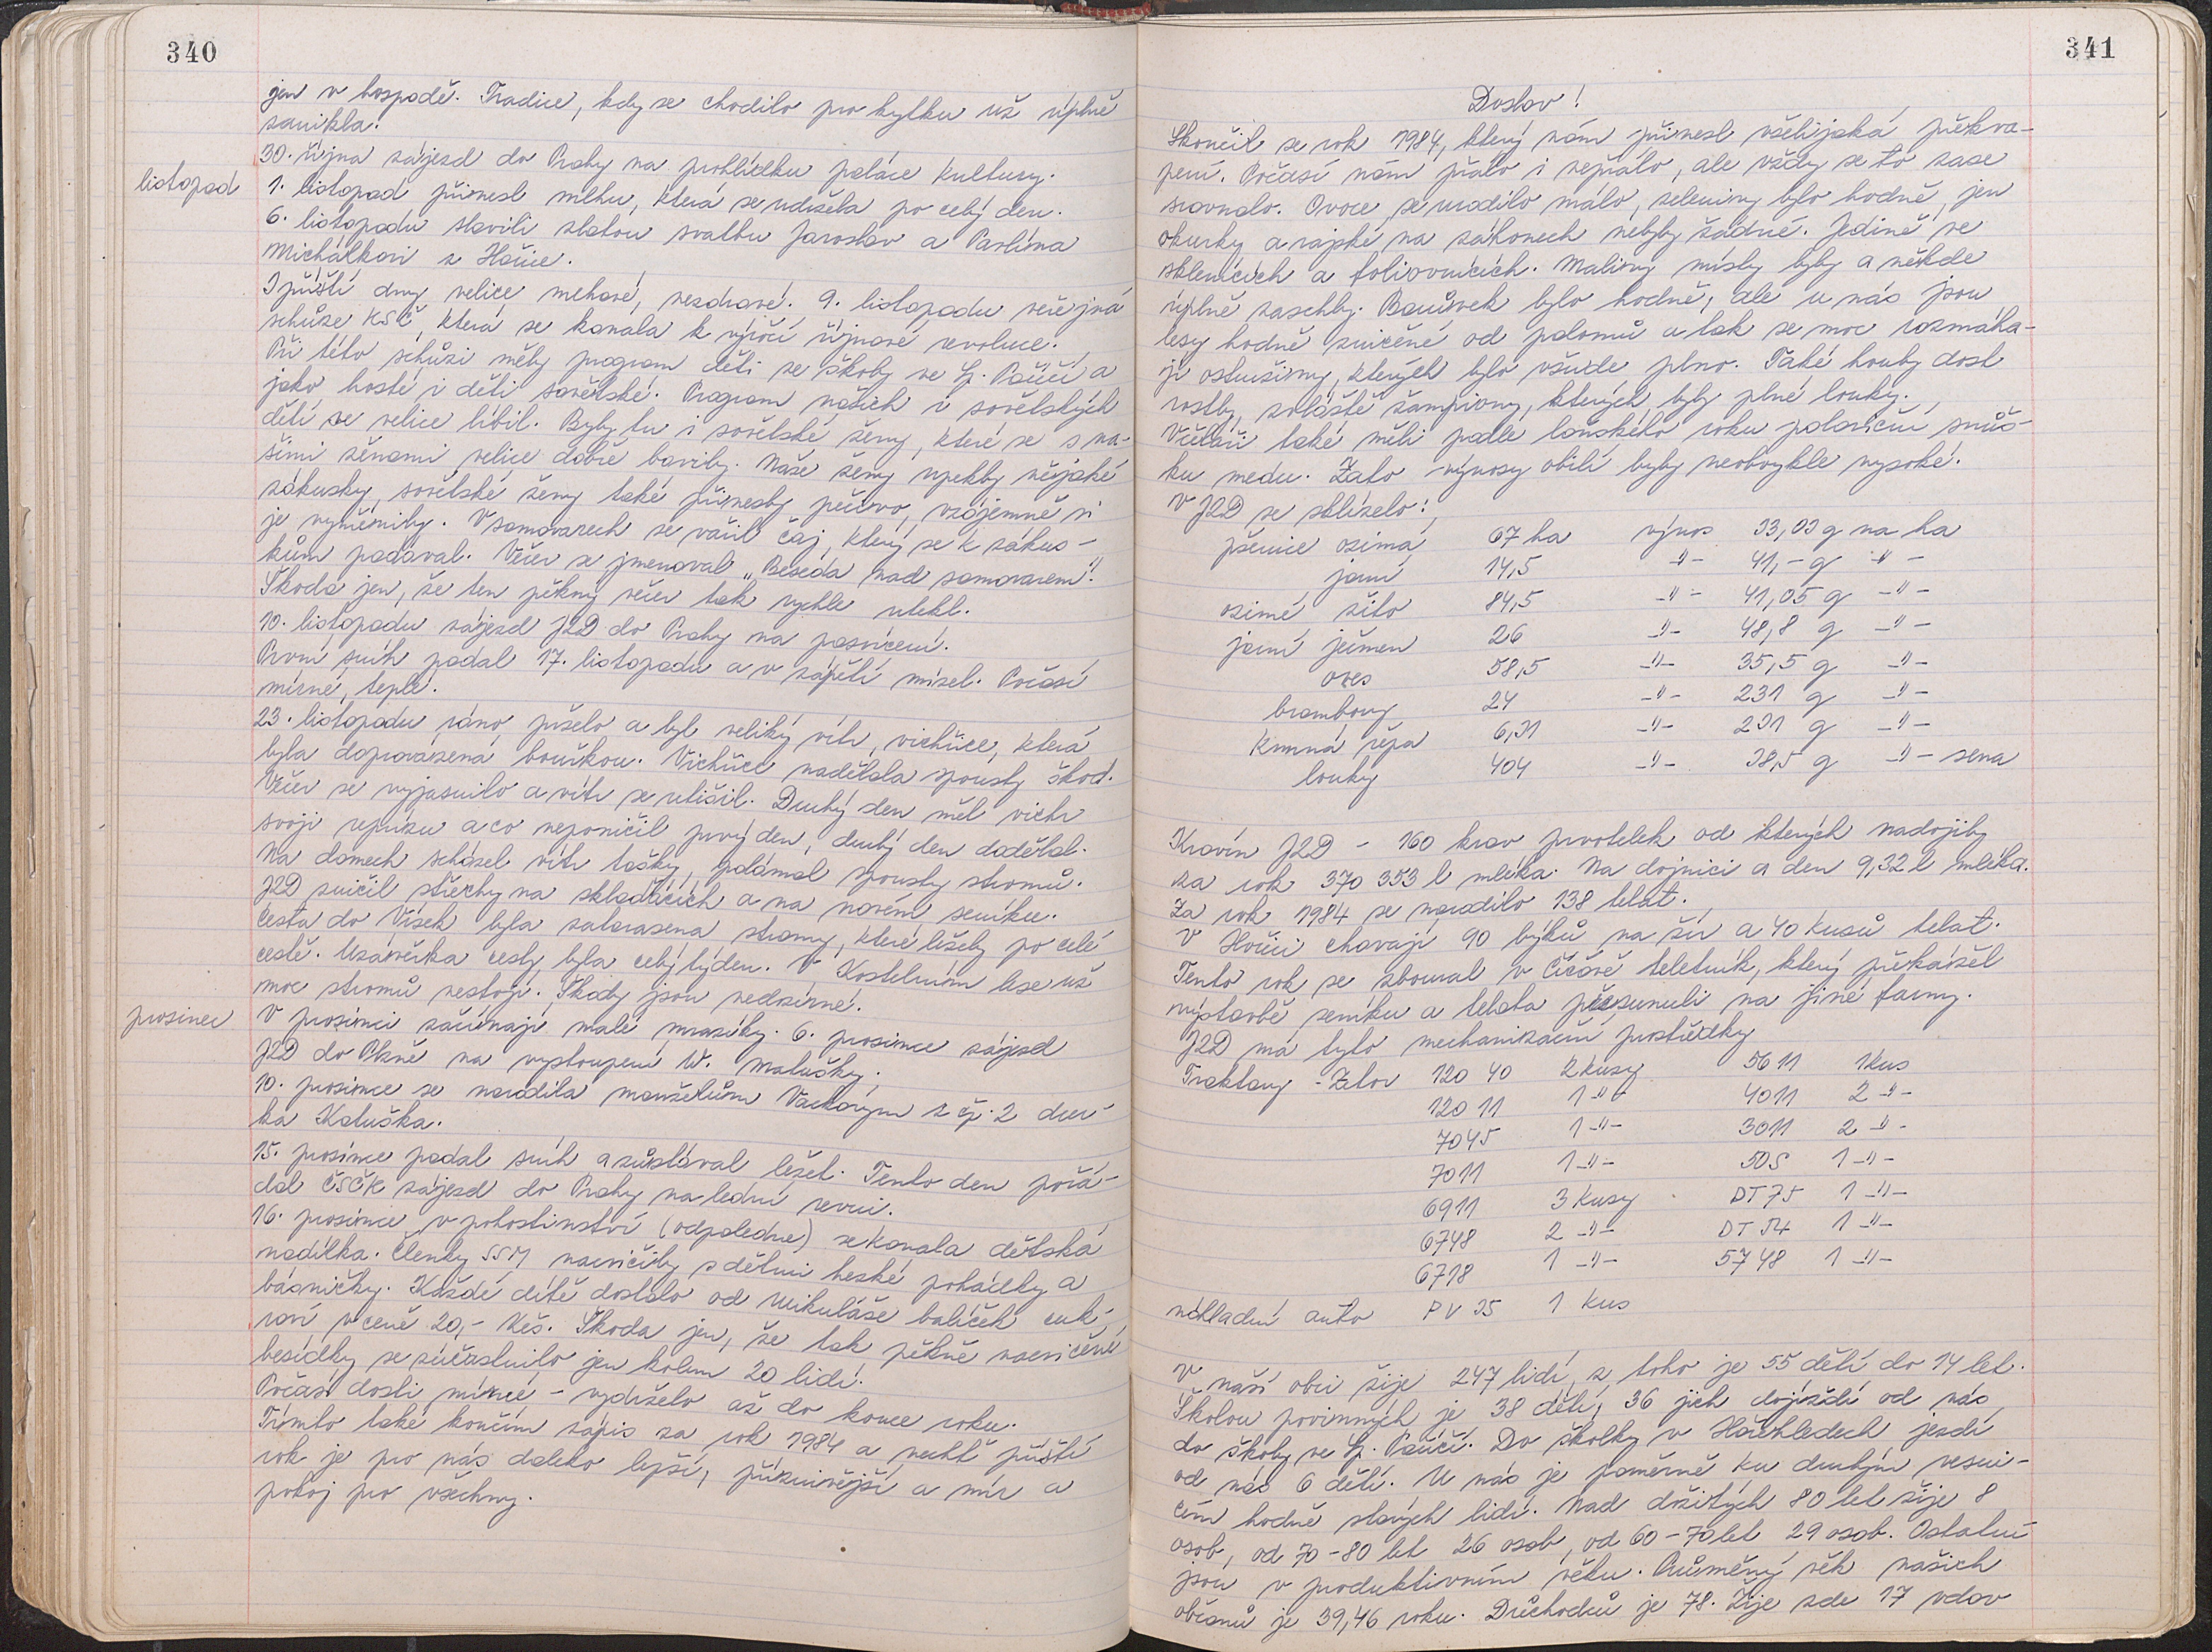 340
jen v hospodě. Tradice, kdy se chodilo pro kytku už úplně
zanikla.
30. října zájezd do Prahy na prohlídku paláce kultury.
listopad
1. listopad přinesl mlhu, která se udržela po celý den.
6. listopadu slavili zlatou svatbu Jaroslav a Pavlína
Michálkovi z Hořice.
I příští dny velice mlhavé, nezdravé. 9. listopadu veřejná
schůze KSČ, která se konala k výročí říjnové revoluce.
Při této schůzi měly program děti ze školy ve Sp. Poříčí a
jako hosté i děti sovětské. Program našich i sovětských
dětí se velice líbil. Byly tu i sovětské ženy, které se s na-
šimi ženami velice dobře bavily. Naše ženy upekly nějaké
zákusky, sovětské ženy také přinesly pečivo, vzájemně si
je vyměnily. V samovarech se vařil čaj, který se k zákus-
kům podával. Večer se jmenoval „Beseda nad samovarem".
Škoda jen, že ten pěkný večer tak rychle utekl.
10. listopadu zájezd JZD do Prahy na posvícení.
První sníh padal 17. listopadu a v zápětí mizel. Počasí
mírné, teplé.
23. listopadu ráno pršelo a byl veliký vítr, vichřice, která
byla doprovázená bouřkou. Vichřice nadělala spousty škod.
Večer se vyjasnilo a vítr se utišil. Druhý den měl vichr
svoji reprízu a co neponičil prvý den, druhý den dodělal.
Na domech scházel vítr tašky, polámal spousty stromů.
JZD zničil střechy na skladištích a na novém seníku.
Cesta do Vísek byla zatarasena stromy, které ležely po celé
cestě. Uzávěrka cesty byla celý týden. V Kostelním lese už
moc stromů nestojí. Škody jsou nedozírné.
prosinec
V prosinci začínají malé mrazíky. 6. prosince zájezd
JZD do Plzně na vystoupení W. Matušky.
10. prosince se narodila manželům Vackovým z čp. 2 dcer-
ka Katuška.
15. prosince padal sníh a zůstával ležet. Tento den pořá-
dal ČSČK zájezd do Prahy na lední revui.
16. prosince v pohostinství (odpoledne) se konala dětská
nadílka. Členky SSM nacvičily s dětmi hezké pohádky a
básničky. Každé dítě dostalo od Mikuláše balíček cuk-
roví v ceně 20,- Kčs. Škoda jen, že tak pěkně nacvičené
besídky se zúčastnilo jen kolem 20 lidí.
Počasí dosti mírné - vydrželo až do konce roku.
Tímto také končím zápis za rok 1984 a nechť příští
rok je pro nás daleko lepší, příznivější a mír a
pokoj pro všechny.
341
Doslov!
Skončil se rok 1984, který nám přinesl všelijaká překva-
pení. Počasí nám přálo i nepřálo, ale vždy se to zase
srovnalo. Ovoce se urodilo málo, zeleniny bylo hodně, jen
okurky a rajské na záhonech nebyly žádné. Jedině ve
sklenících a foliovnících. Maliny místy byly a někde
úplně zaschly. Borůvek bylo hodně, ale u nás jsou
lesy hodně zničené od polomů a tak se moc rozmáha-
jí ostružiny, kterých bylo všude plno. Také houby dost
rostly, zvláště žampiony, kterých byly plné louky.
Včelaři také měli podle loňského roku poloviční snůš-
ku medu. Zato výnosy obilí byly neobvykle vysoké.
V JZD se sklízelo:
pšenice ozimá 67 ha výnos 33,03 q na ha
jarní 14,5 -"- 41,- q -"-
ozimé žito 84,5 -"- 41,05 q -"-
jarní ječmen 26 -"- 48,8 q -"-
oves 58,5 -"- 35,5 q -"-
brambory 24 -"- 231 q -"-
krmná řepa 6,31 -"- 201 q -"-
louky 404 -"- 38,5 q -"- sena
Kravín JZD - 160 krav prvotelek od kterých nadojily
za rok 370 353 l mléka. Na dojnici a den 9,32 l mléka.
Za rok 1984 se narodilo 138 telat.
V Hořici chovají 90 býků na žír a 40 kusů telat.
Tento rok se zboural v Číčově teletník, který překážel
výstavbě seníku a telata přesunuli na jiné farmy.
JZD má tyto mechanizační prostředky
Traktory - Zetor 120 40 2 kusy 5611 1 kus
120 11 1 -"- 4011 2 -"-
7045 1 -"- 3011 2 -"-
7011 1 -"- 50S 1 -"-
6911 3 kusy DT 75 1 -"-
6748 2 -"- DT 54 1 -"-
6718 1 -"- 5748 1 -"-
nákladní auto PV 35 1 kus
V naší obci žije 247 lidí, z toho je 55 dětí do 14 let.
Školou povinných je 38 dětí, 36 jich dojíždí od nás
do školy ve Sp. Poříčí. Do školky v Hořehledech jezdí
od nás 6 dětí. U nás je poměrně ku druhým vesni-
cím hodně starých lidí. Nad dožitých 80 let žije 8
osob, od 70-80 let 26 osob, od 60-70 let 29 osob. Ostatní
jsou v produktivním věku. Průměrný věk našich
občanů je 39,46 roku. Důchodců je 78. Žije zde 17 vdov